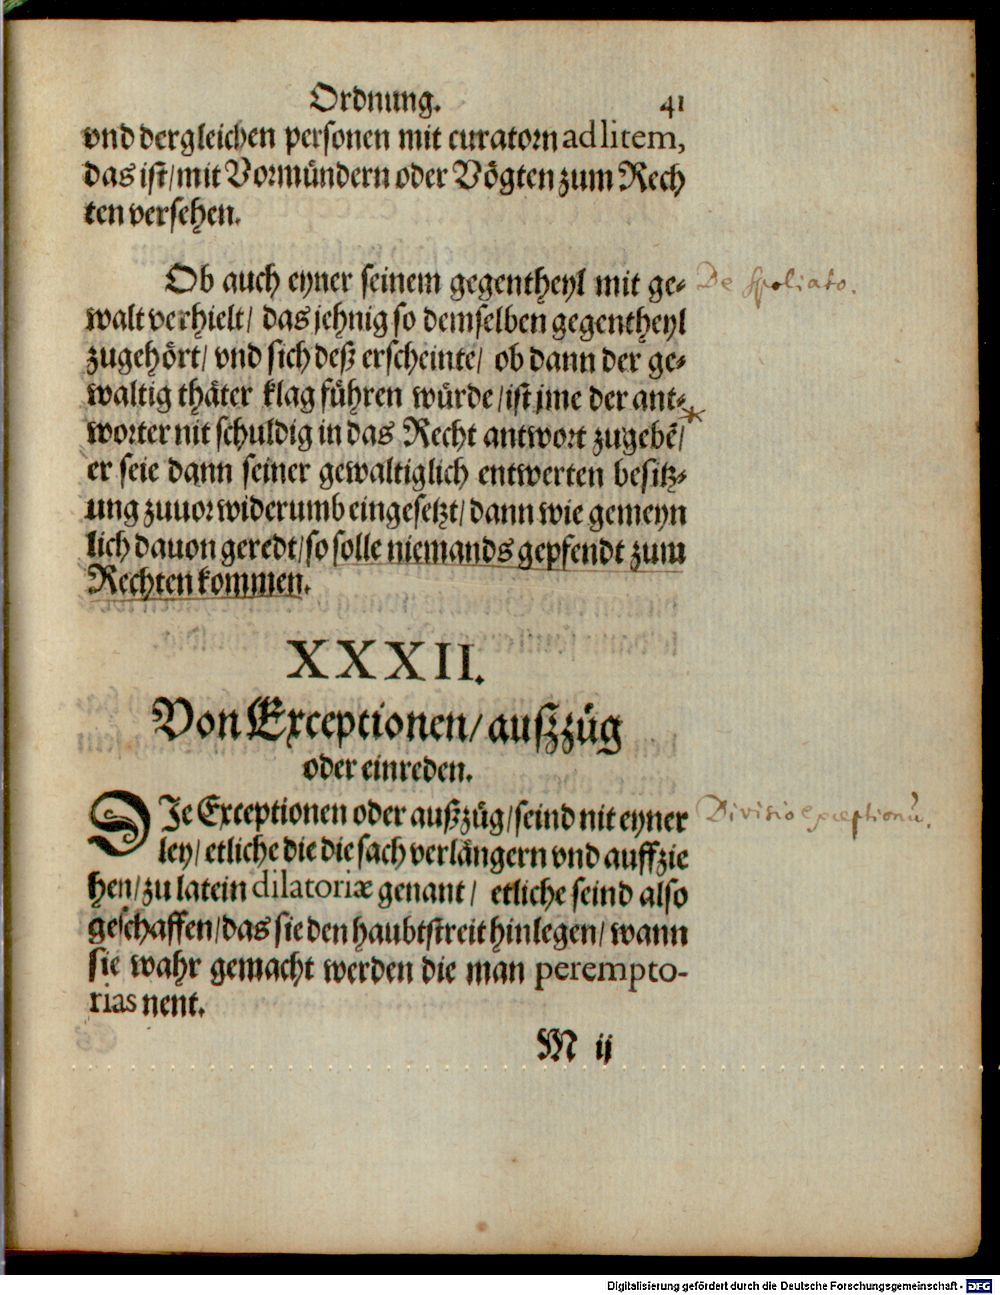 Ordnung. 41
vnd dergleichen personen mit curatorn ad litem,
das ist/ mit Vormündern oder Vögten zum Rech
ten versehen.
Ob auch eyner seinem gegentheyl mit ge⸗ De spoliato.
walt verhielt/ das jehnig so demselben gegentheyl
zugehört/ vnd sich deß erscheinte/ ob dann der ge⸗
waltig thäter klag führen würde/ ist jme der ant⸗ *
worter nit schuldig in das Recht antwort zugebẽ/
er seie dann seiner gewaltiglich entwerten besitz⸗
ung zuuor widerumb eingesetzt/ dann wie gemeyn
lich dauon geredt/ so solle niemands gepfendt zum
Rechten kommen.
XXXII.
Von Exceptionen/ außzüg
oder einreden.
DIe Exceptionen oder außzüg/ seind nit eyner Divisio exceptionũ.
ley/ etliche die die sach verlängern vnd auffzie
hen/ zu latein dilatoriæ genant/ etliche seind also
geschaffen/ das sie den haubtstreit hinlegen/ wann
sie wahr gemacht werden die man perempto-
rias nent.
M ij
Digitalisierung gefördert durch die Deutsche Forschungsgemeinschaft - DFG